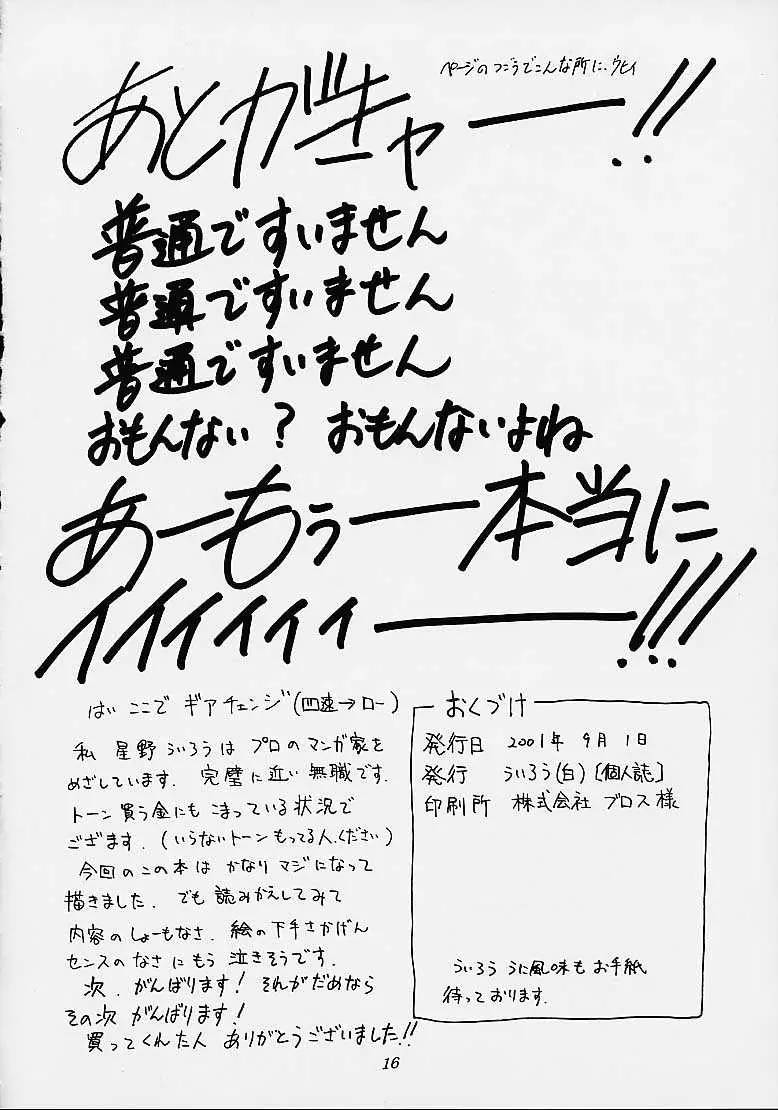 ページのつごうでこんな所に、ウヒィ
あとがキャー!!
普通ですいません
普通ですいません
普通ですいません
おもんない? おもんないよね
あーもぅー本当に
イイイィィィー!!!
はい ここで ギアチェンジ(四速→ロー)
私 星野ういろうは プロのマンガ家を
めざしています. 完璧に近い無職です.
トーン買う金にも こまっている状況で
ござます. (いらないトーンもってる人.ください)
今回のこの本は かなり マジになって
描きました. でも 読みかえしてみて
内容のしょーもなさ. 絵の下手さかげん
センスのなさ にもう 泣きそうです.
次. がんばります! それがだめなら
その次 がんばります!
買ってくれた人 ありがとうございました!!
おくづけ
発行日 2001年 9月 1日
発行 ういろう(白) [個人誌]
印刷所 株式会社 ブロス様
ういろう うに風味も お手紙
待っております.
16